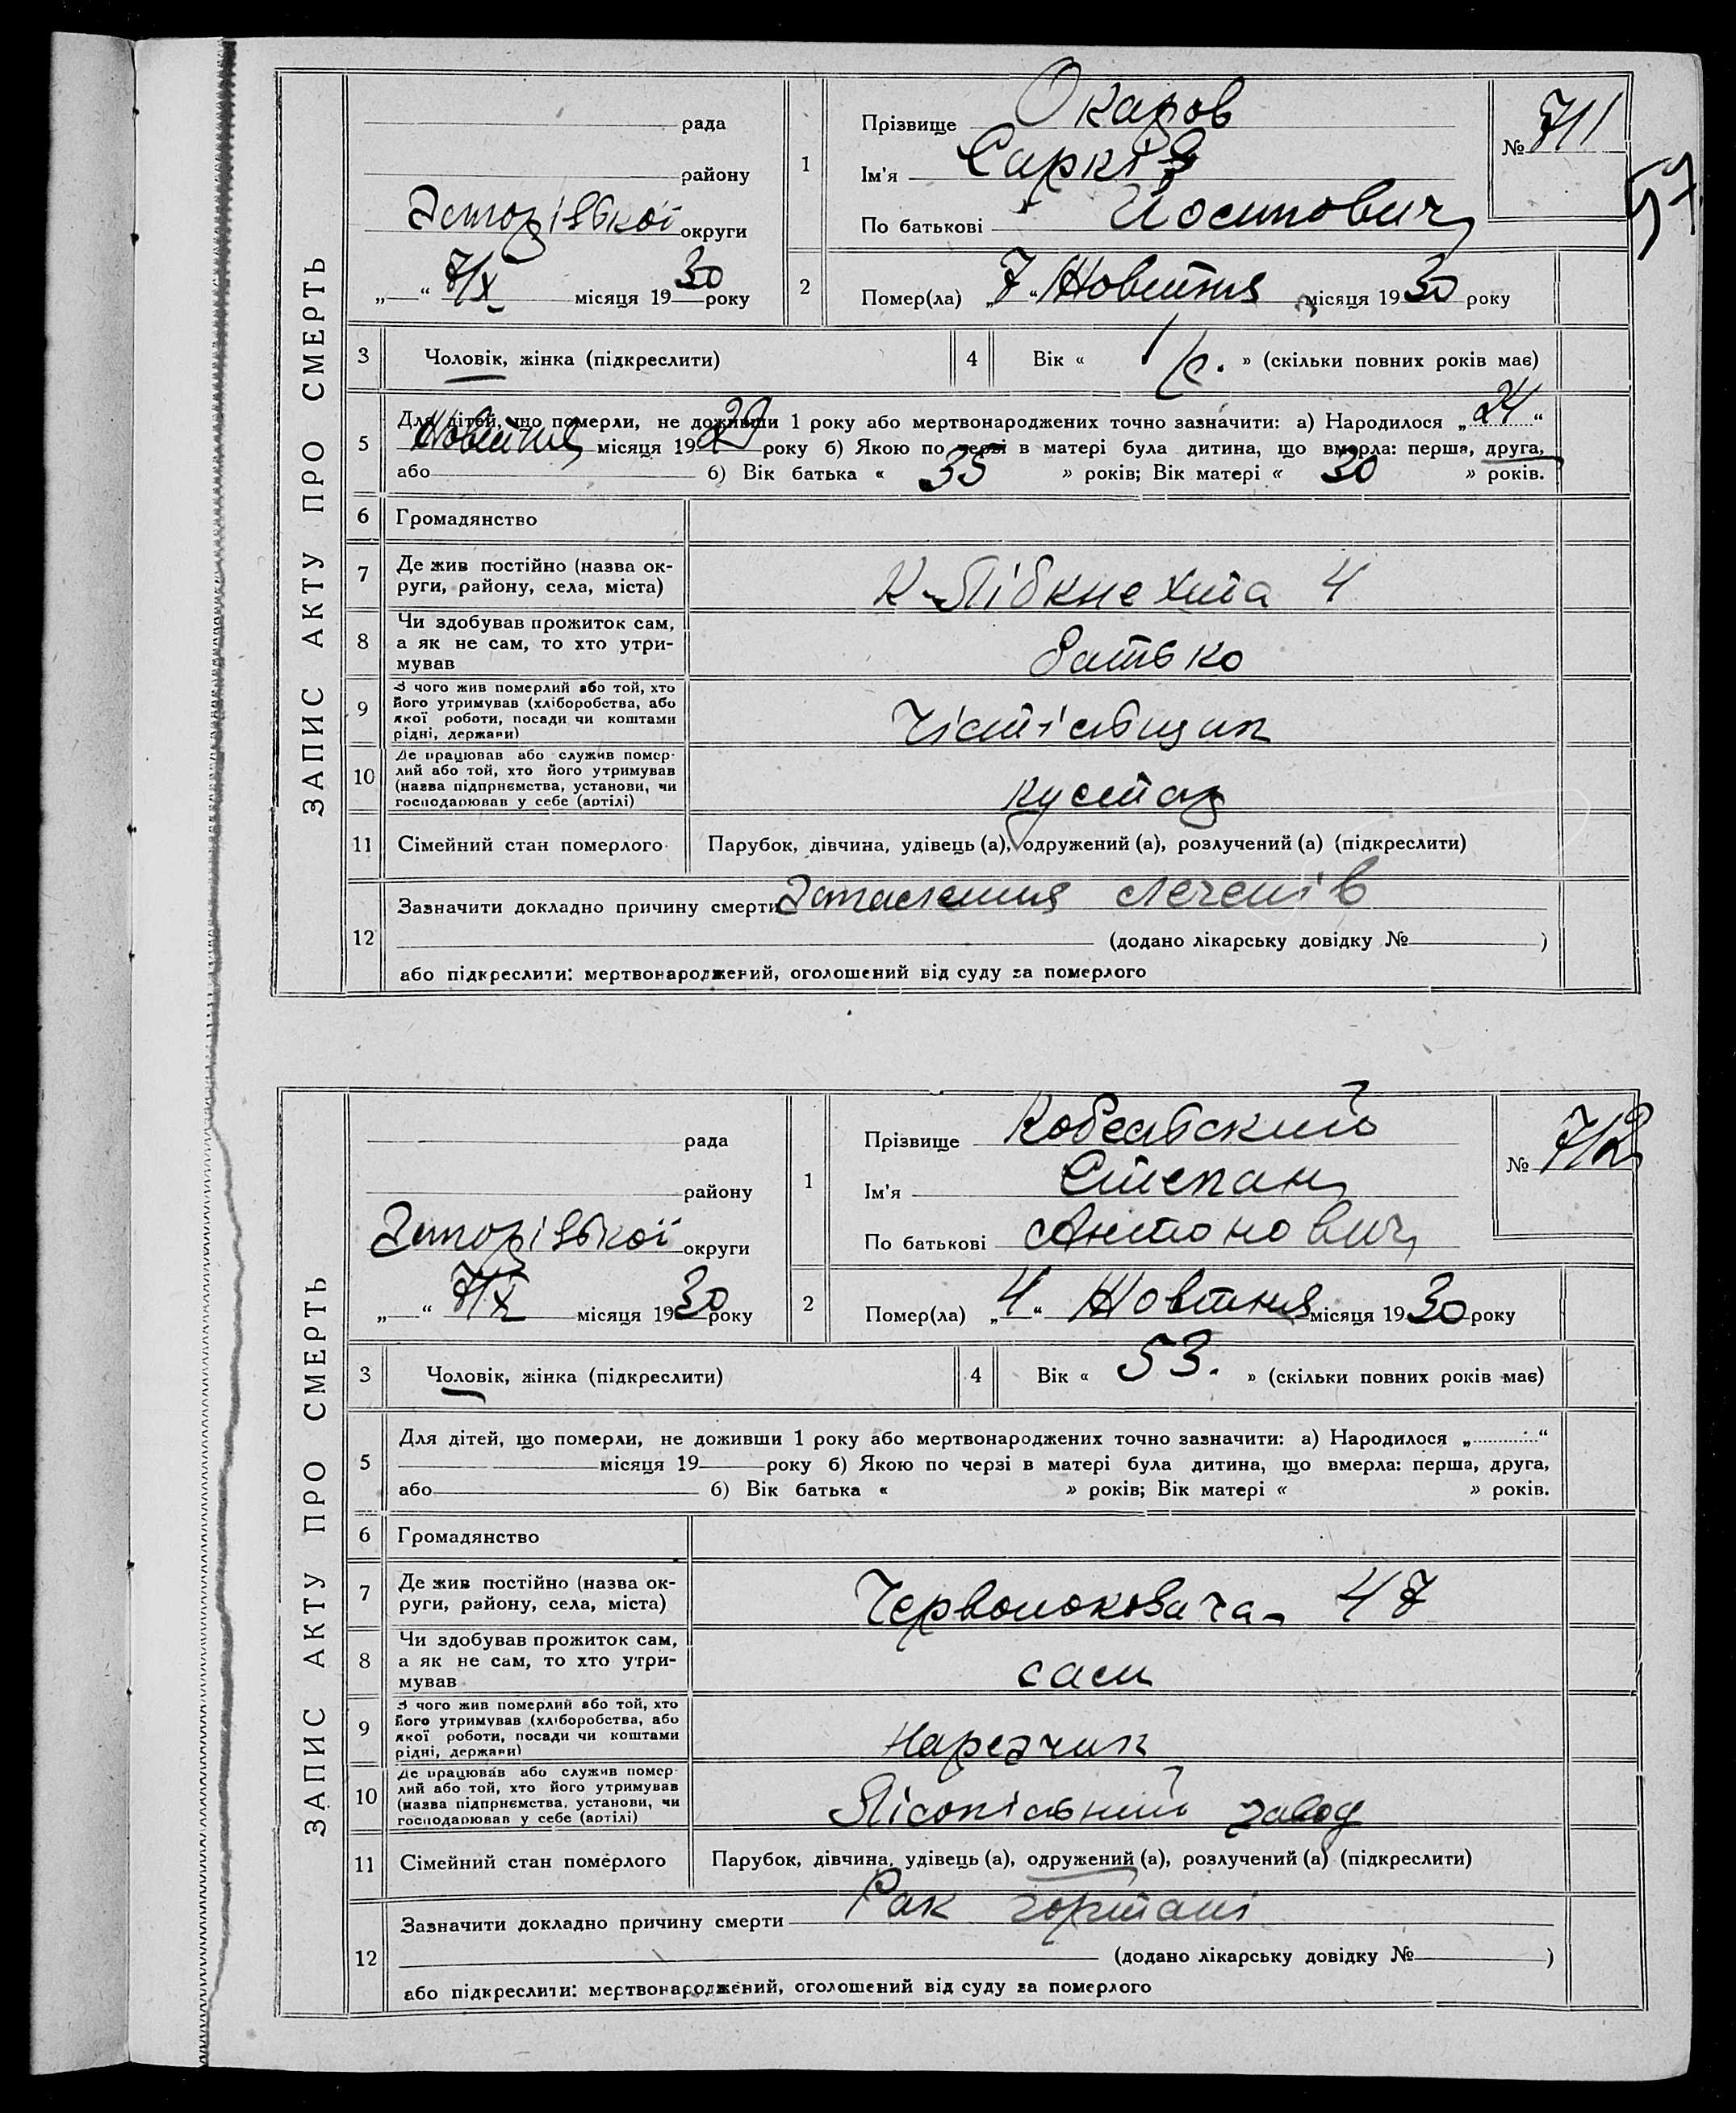 ЗАПИС АКТУ ПРО СМЕРТЬ
рада
району
Запорізької округи
„ “ 7/X місяця 1930 року
1
Прізвище Окаров
Ім'я Саркіз
По батькові Йосипович
№ 711
57
2
Помер(ла) „7“ Жовтня місяця 1930 року
3 Чоловік, жінка (підкреслити)
4 Вік « 1 р. » (скільки повних років має)
5 Для дітей, що померли, не доживши 1 року або мертвонароджених точно зазначити: а) Народилося „24“
Жовтня місяця 1929 року б) Якою по черзі в матері була дитина, що вмерла: перша, друга,
або б) Вік батька « 35 » років; Вік матері « 30 » років.
6 Громадянство
7 Де жив постійно (назва ок-
руги, району, села, міста)
К-Лібкнехта 4
8 Чи здобував прожиток сам,
а як не сам, то хто утри-
мував
батько
9 З чого жив померлий або той, хто
його утримував (хліборобства, або
якої роботи, посади чи коштами
рідні, держави)
Чістільщик
10 Де працював або служив помер-
лий або той, хто його утримував
(назва підприємства, установи, чи
господарював у себе (артілі)
кустар
11 Сімейний стан померлого
Парубок, дівчина, удівець (а), одружений (а), розлучений (а) (підкреслити)
12 Зазначити докладно причину смерти Запаления легенів
(додано лікарську довідку № )
або підкреслити: мертвонароджений, оголошений від суду за померлого
ЗАПИС АКТУ ПРО СМЕРТЬ
рада
району
Запорізької округи
„ “ 7/X місяця 1930 року
1
Прізвище Кобельский
Ім'я Степан
По батькові Антонович
№ 712
2
Помер(ла) „4“ Жовтня місяця 1930 року
3 Чоловік, жінка (підкреслити)
4 Вік « 53. » (скільки повних років має)
5 Для дітей, що померли, не доживши 1 року або мертвонароджених точно зазначити: а) Народилося „ “
місяця 19 року б) Якою по черзі в матері була дитина, що вмерла: перша, друга,
або б) Вік батька « » років; Вік матері « » років.
6 Громадянство
7 Де жив постійно (назва ок-
руги, району, села, міста)
47
8 Чи здобував прожиток сам,
а як не сам, то хто утри-
мував
сам
9 З чого жив померлий або той, хто
його утримував (хліборобства, або
якої роботи, посади чи коштами
рідні, держави)
Нарезчик
10 Де працював або служив помер-
лий або той, хто його утримував
(назва підприємства, установи, чи
господарював у себе (артілі)
Лісопільний завод
11 Сімейний стан померлого
Парубок, дівчина, удівець (а), одружений (а), розлучений (а) (підкреслити)
12 Зазначити докладно причину смерти Рак гортані
(додано лікарську довідку № )
або підкреслити: мертвонароджений, оголошений від суду за померлого